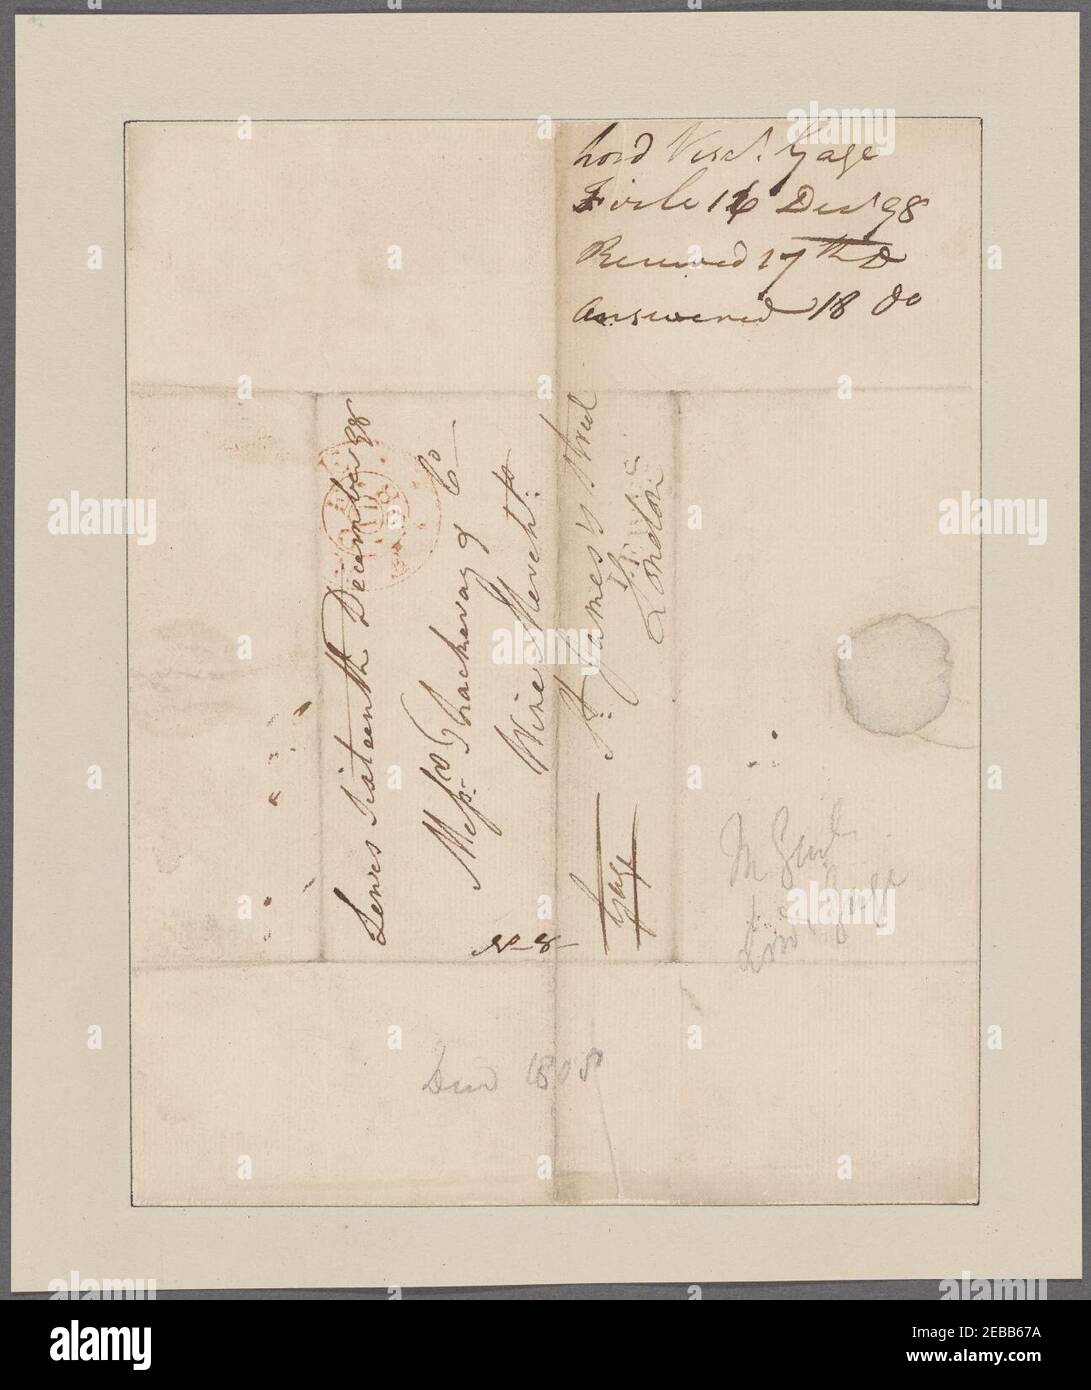 Lord Visct. Gage
Firle 16 Decr 98
Received 17th Do
Answered 18 do
Lewes Sixteenth December 98
Messrs Thackeray & Co
Wine Mercht.s
St. James's Street
London
No 8
Gage
Lord Gage
1808
alamy
Image ID: 2EBB67A
www.alamy.com